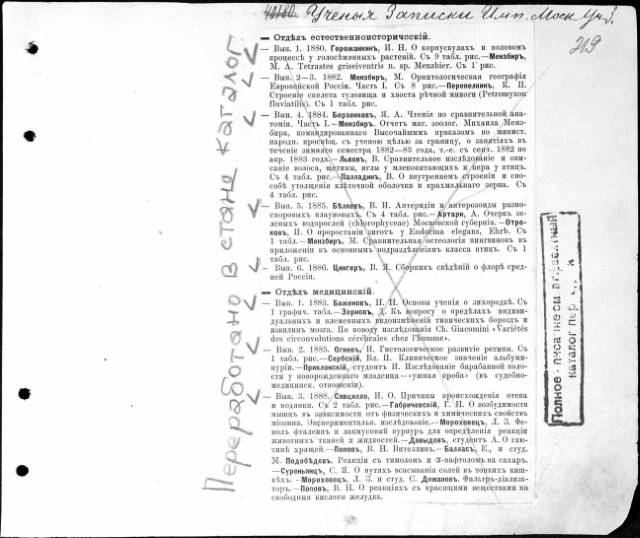 Ученыя Записки Имп. Моск. Ун-
219
— Отдѣлъ естественноисторическій.
— Вып. 1. 1880. Горожанкинъ, И. Н. О корпускулахъ и половомъ
процессѣ у голосѣмянныхъ растеній. Съ 9 табл. рис.—Мензбиръ,
М. А. Tetrastes griseiventris n. sp. Menzbier. Съ 1 рис.
— Вып. 2—3. 1882. Мензбиръ, М. Орнитологическая географія
Европейской Россіи. Часть I. Съ 8 рис.—Перепелкинъ, К. П.
Строеніе скелета туловища и хвоста рѣчной миноги (Petromyzon
fluviatilis). Съ 1 табл. рис.
— Вып. 4. 1884. Борзенковъ, Я. А. Чтенія по сравнительной ана-
томіи. Часть I.—Мензбиръ. Отчетъ маг. зоолог. Михаила Менз-
бира, командированнаго Высочайшимъ приказомъ по минист.
народн. просвѣщ. съ ученою цѣлью за границу, о занятіяхъ въ
теченіе зимняго семестра 1882—83 года, т.-е. съ сент. 1882 по
апр. 1883 года.—Львовъ, В. Сравнительное изслѣдованіе и опи-
саніе волоса, щетины, иглы у млекопитающихъ и пера у птицъ.
Съ 4 табл. рис.—Палладинъ, В. О внутреннемъ строеніи и спо-
собѣ утолщенія клѣточной оболочки и крахмальнаго зерна. Съ
4 табл. рис.
— Вып. 5. 1885. Бѣляевъ, В. Н. Антеридіи и антерозоиды разно-
споровыхъ плауновыхъ. Съ 4 табл. рис.—Артари, А. Очеркъ зе-
леныхъ водорослей (chlorophyceae) Московской губерніи.—Отро-
ковъ, П. О проростаніи зиготъ у Eudorina elegans, Ehrb. Съ
1 табл.—Мензбиръ, М. Сравнительная остеологія пингвиновъ въ
приложеніи къ основнымъ подраздѣленіямъ класса птицъ. Съ 1
табл. рис.
— Вып. 6. 1886. Цингеръ, В. Я. Сборникъ свѣдѣній о флорѣ сред-
ней Россіи.
— Отдѣлъ медицинскій.
— Вып. 1. 1883. Баженовъ, Н. Н. Основы ученія о лихорадкѣ. Съ
1 графич. табл.—Зерновъ, Д. Къ вопросу о предѣлахъ индиви-
дуальныхъ и племенныхъ видоизмѣненій типическихъ бороздъ и
извилинъ мозга. По поводу изслѣдованія Ch. Giacomini «Variétés
des circonvolutions cérébrales chez l'homme».
— Вып. 2. 1885. Огневъ, И. Гистологическое развитіе ретины. Съ
1 табл. рис.—Сербскій, Вл. П. Клиническое значеніе альбуми-
нуріи.—Приклонскій, студентъ И. Изслѣдованіе барабанной полос-
ти у новорожденнаго младенца—«ушная проба» (въ судебно-
медицинск. отношеніи).
— Вып. 3. 1888. Савцилло, И. О. Причины происхожденія отека
и водянки. Съ 2 табл. рис.—Габричевскій, Г. Н. О возбудимости
мышцъ въ зависимости отъ физическихъ и химическихъ свойствъ
міозина. Экспериментальн. изслѣдованіе.—Мороховецъ, Л. З. Фе-
нолъ фталеинъ и лакмусовый пурпуръ для опредѣленія реакціи
животныхъ тканей и жидкостей.—Давыдовъ, студентъ А. О глю-
тинѣ хрящей.—Поповъ, В. Н. Вителлинъ.—Балласъ, Е., и студ.
М. Подобѣдовъ. Реакціи съ тимоломъ и α-нафтоломъ на сахаръ.
—Суреньянцъ, С. Я. О путяхъ всасыванія солей въ тонкихъ киш-
кахъ.—Мороховецъ, Л. З. и студ. С. Домановъ. Фильтръ-діализа-
торъ.—Поповъ, В. Н. О реакціяхъ съ красящими веществами на
свободныя кислоты желудка.
Переработано в стане каталог
Полное
каталог пер